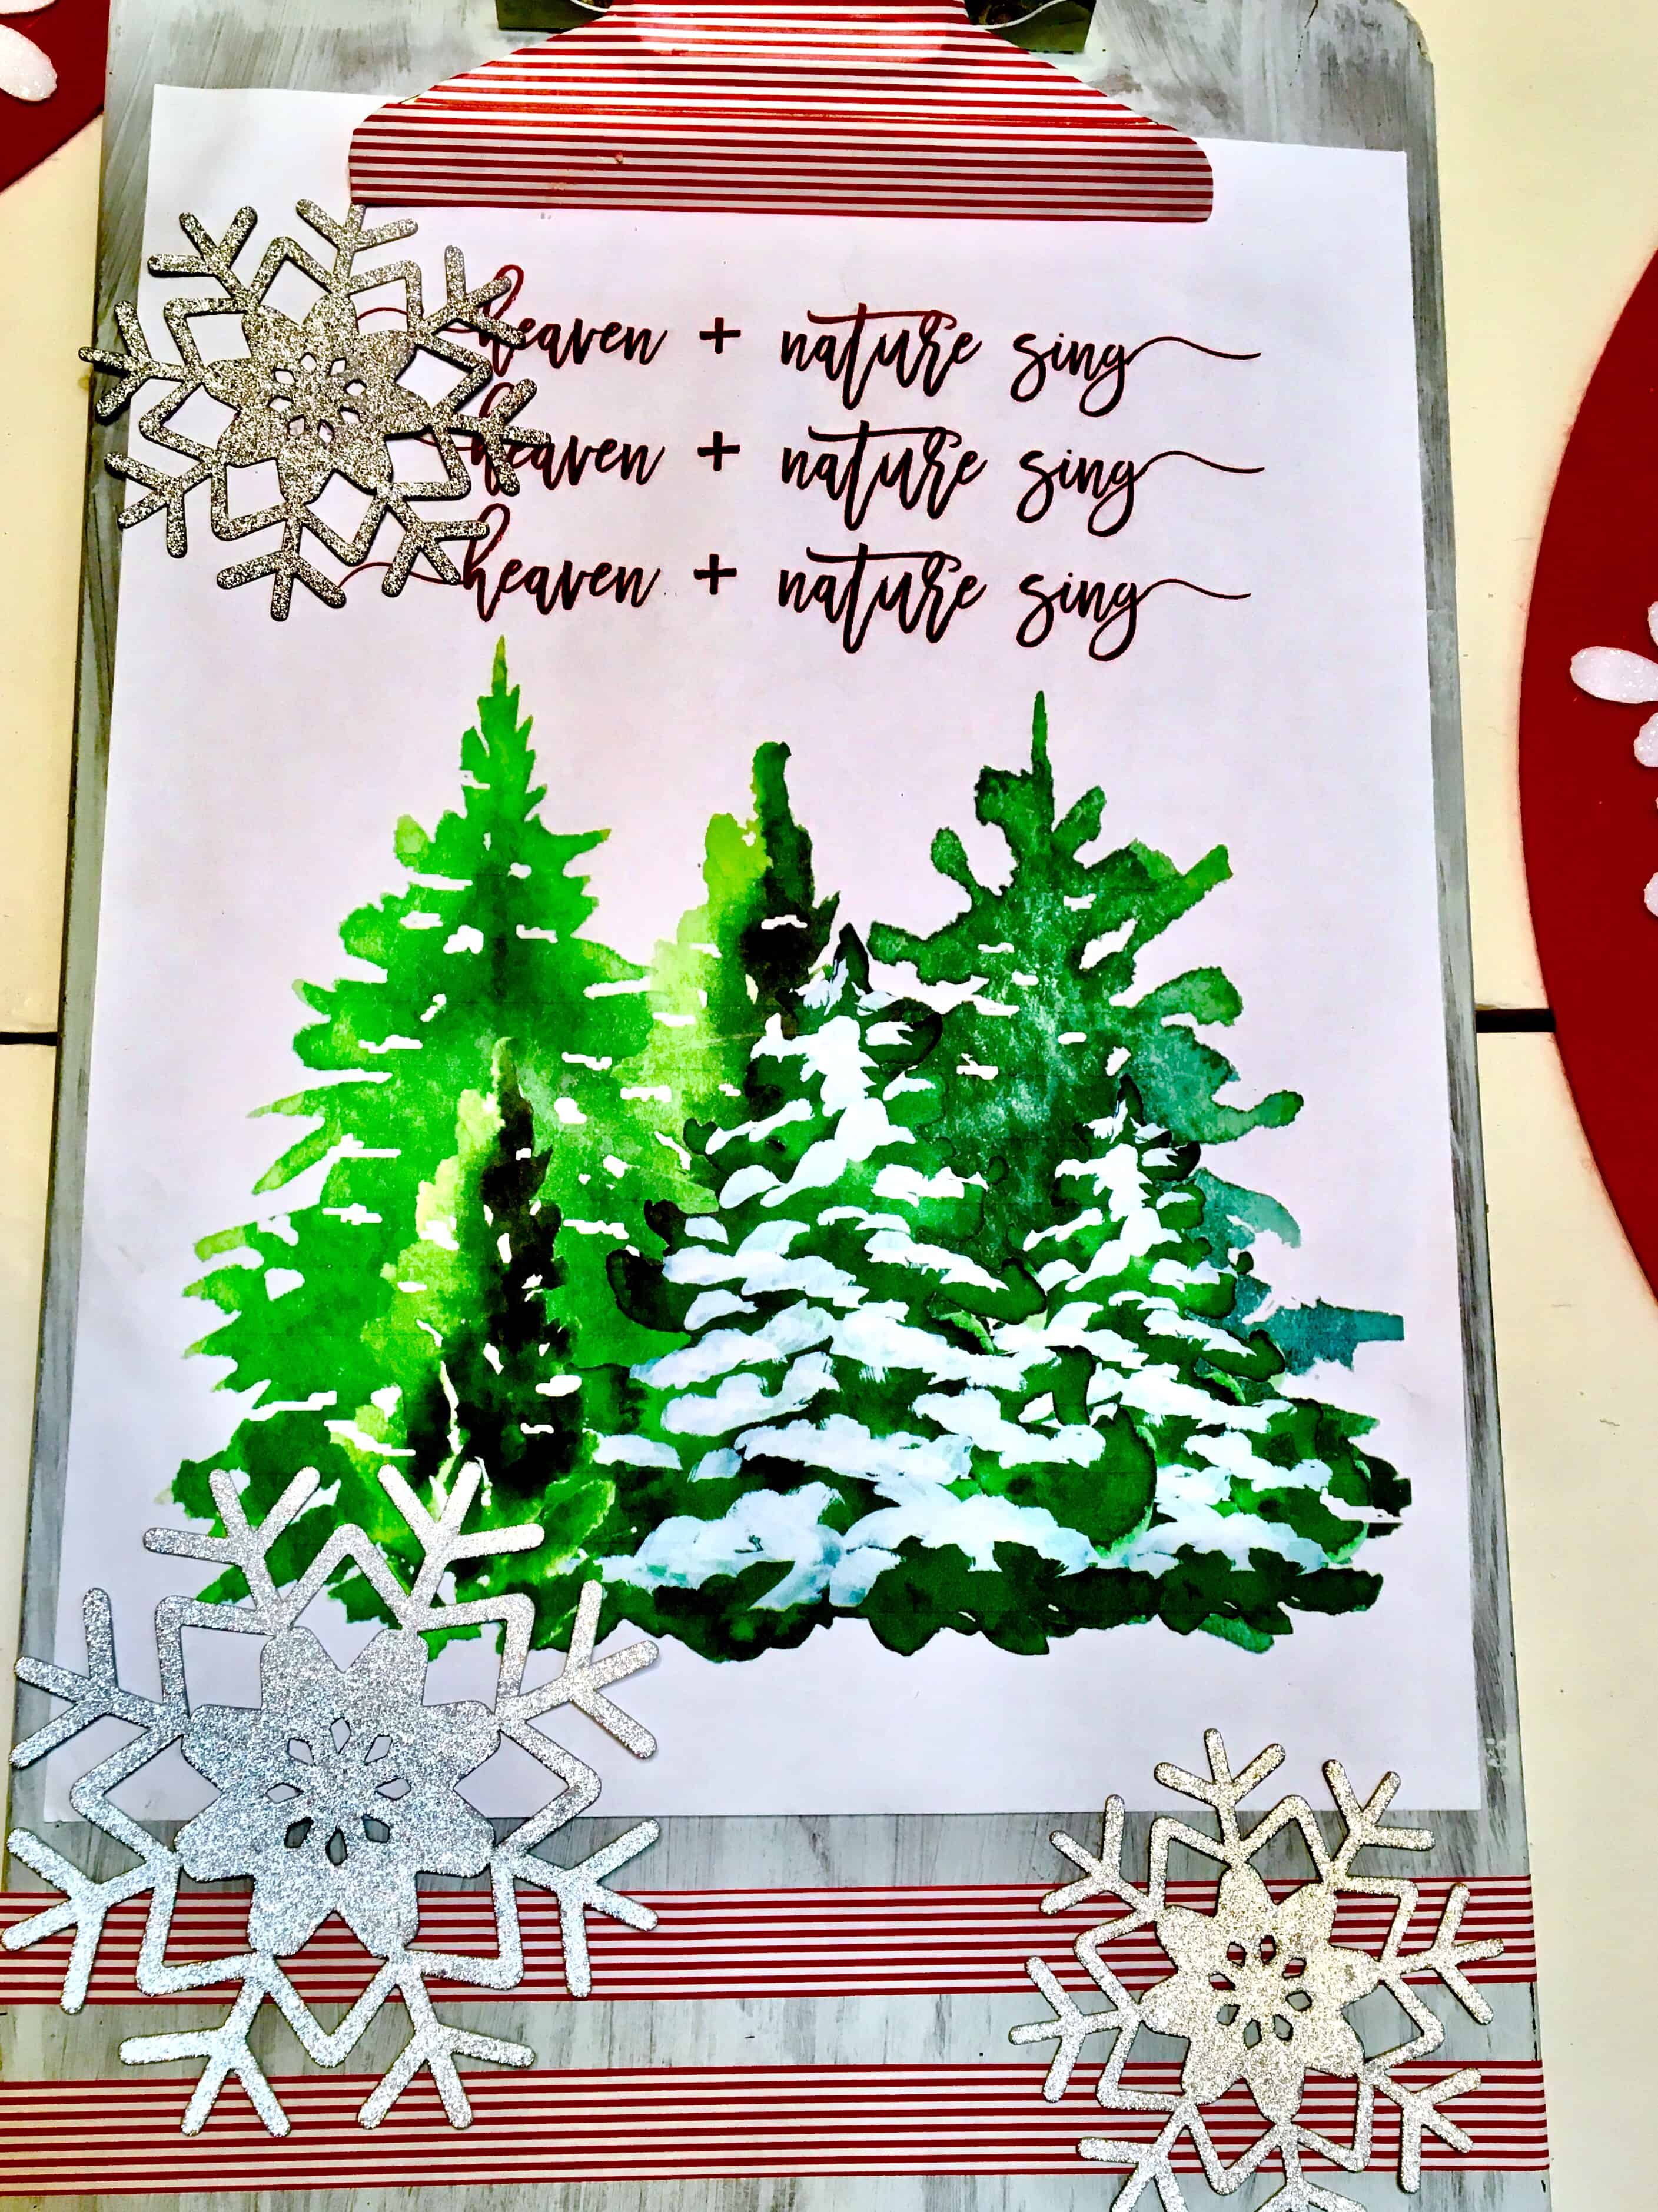 heaven + nature sing
heaven + nature sing
heaven + nature sing